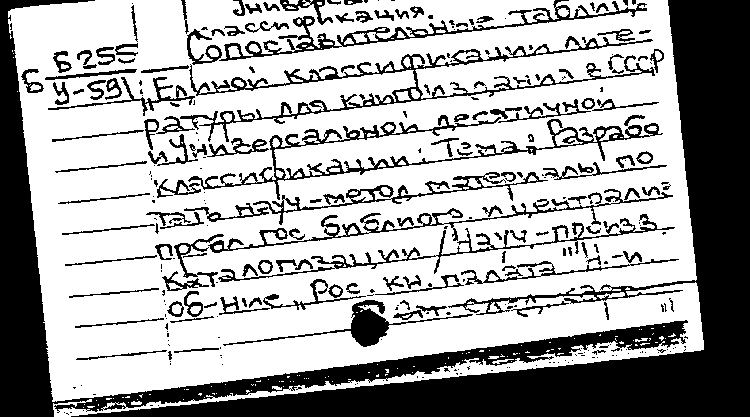 Универсальная
классификация.
Сопоставительные таблицы
Б Б255
У-591
„Единой классификации лите-
ратуры для книгоиздания в СССР
и Универсальной десятичной
классификации: Тема: Разрабо
тать науч.-метод. материалы по
пробл. гос. библиогр. и централиз
каталогизации / Науч.-произв.
об-ние „Рос. кн. палата" Н.-и.
См. след. карт.